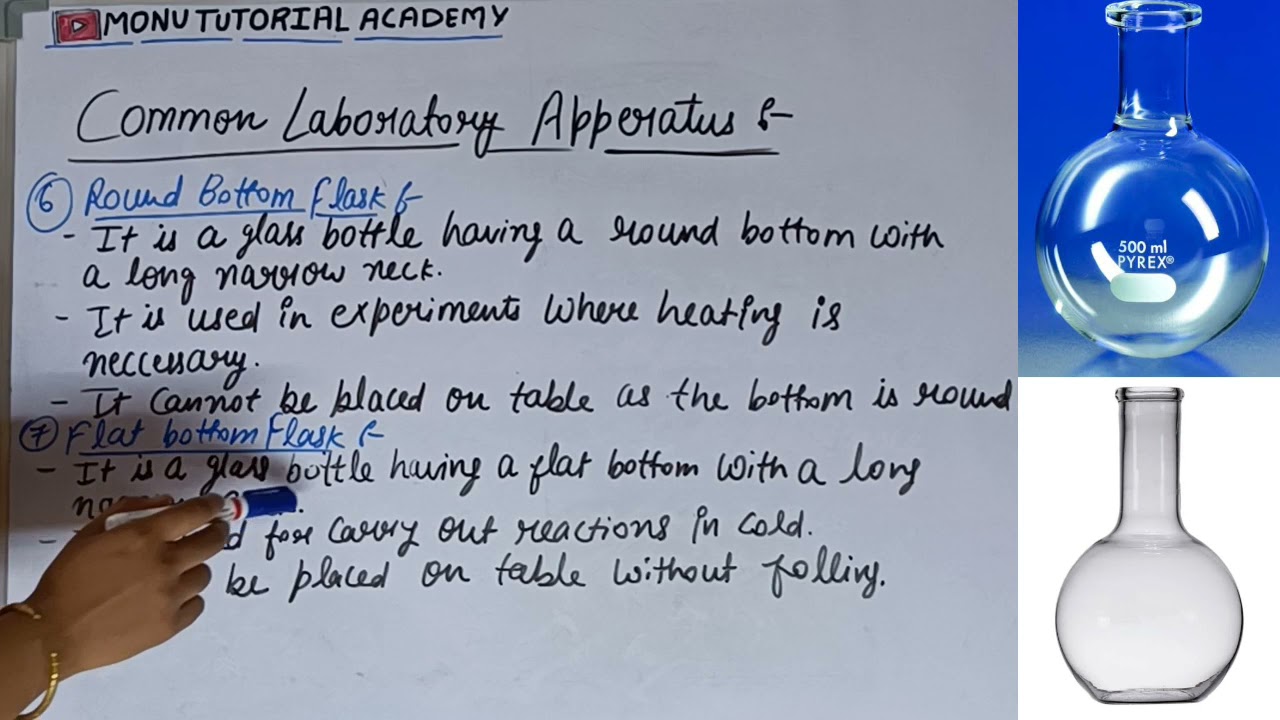 MONU TUTORIAL ACADEMY
Common Laboratory Apperatus :-
6 Round Bottom Flask :-
- It is a glass bottle having a round bottom with
a long narrow neck.
- It is used in experiments where heating is
neccessary.
- It cannot be placed on table as the bottom is round
7 Flat bottom Flask :-
- It is a glass bottle having a flat bottom with a long
- for carry out reactions in cold.
be placed on table without falling.
500 ml
PYREX®